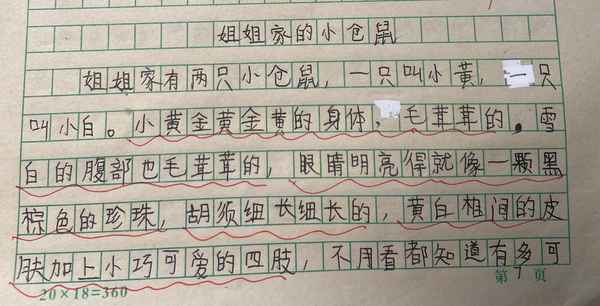 姐姐家的小仓鼠
姐姐家有两只小仓鼠，一只叫小黄，一只
叫小白。小黄金黄金黄的身体，毛茸茸的。雪
白的腹部也毛茸茸的，眼睛明亮得就像一颗黑
棕色的珍珠，胡须细长细长的，黄白相间的皮
肤加上小巧可爱的四肢，不用看都知道有多可
20×18=360
第1页